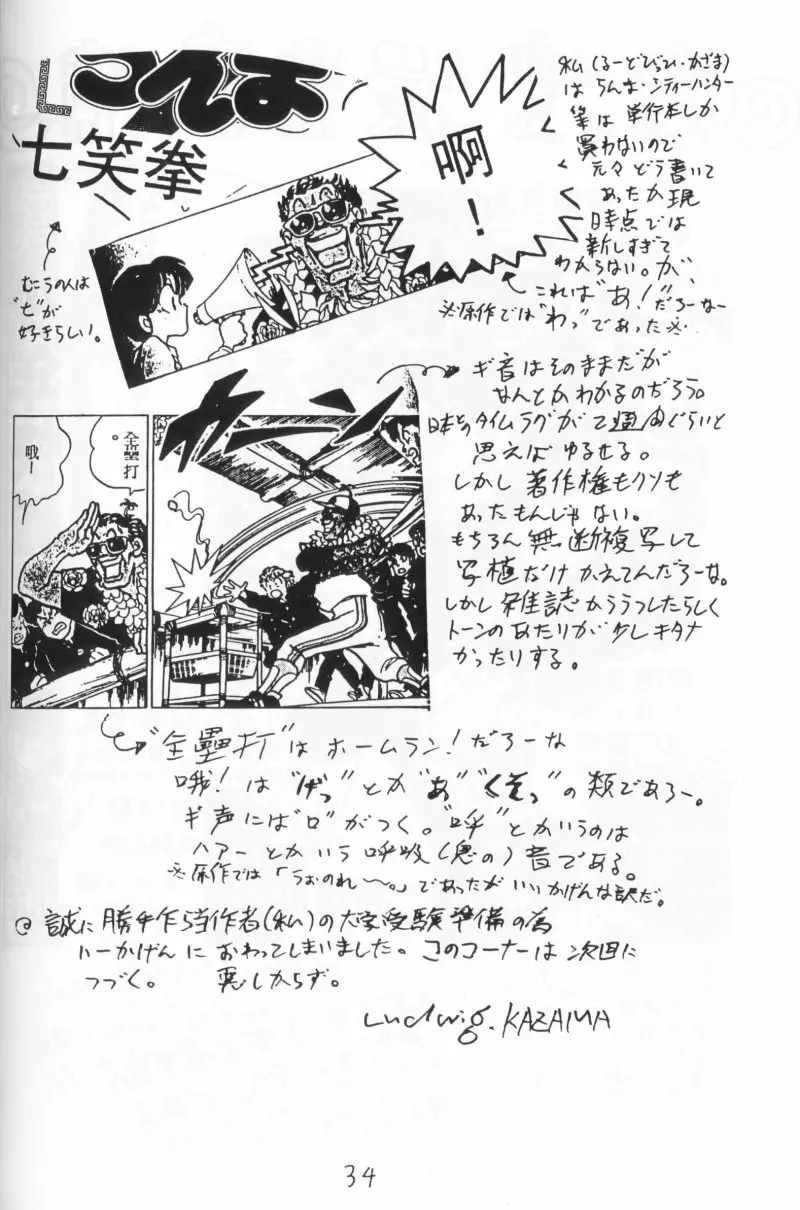 らんま
七笑拳
啊！
私（るーどびひ・かざま）
は らんま・シティーハンター
等は 単行本しか
買わないので
元々 どう書いて
あったか 現
時点では
新しすぎて
わからない。が、
これは“あ！”だろーなー
※原作では“わっ”であった※
むこうの人は
“七”が
好きらしい。
カーン
ギ音はそのままだが
なんとかわかるのだろう。
日本とのタイムラグが2週間ぐらいと
思えば ゆるせる。
しかし 著作権もクソも
あったもんじゃない。
もちろん 無断複写して
写植だけ かえてんだろーな。
しかし 雑誌からうつしたらしく
トーンのあたりが少しキタナ
かったりする。
全壘打。
哦！
“全壘打”は ホームラン！だろーな
哦！は“げっ”とか“あ”“くそっ”の類であろー。
ギ声には“口”がつく。“呼”とかいうのは
ハアーとかいう呼吸（息の）音である。
※原作では「うおのれ〜。」であったがいいかげんな訳だ。
@ 誠に 勝手乍ら当作者（私）の大学受験準備の為
いーかげんに おわってしまいました。このコーナーは 次回に
つづく。 悪しからず。
Ludwig. KAZAMA
34